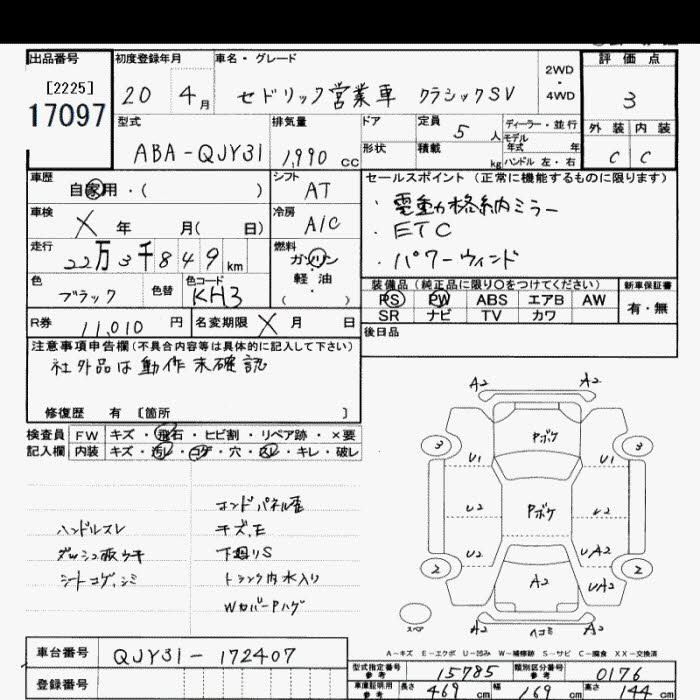 出品番号
[2225]
17097
初度登録年月
20 4月
車名・グレード
セドリック営業車 クラシックSV
2WD
・
4WD
評価点
3
外装 内装
C C
型式
ABA-QJY31
排気量
1,990 CC
ドア
形状
定員 5 人
積載 kg
ディーラー・並行
モデル
年式 年
ハンドル 左・右
車歴
自家用・( )
シフト
AT
セールスポイント (正常に機能するものに限ります)
・電動格納ミラー
・ETC
・パワーウィンド
車検
X 年 月( 日)
冷房
A/C
走行
22万3千849km
燃料
ガソリン
軽・油
( )
色
ブラック
色替
色コード
KH3
装備品(純正品に限り○をつけてください)
PS PW ABS エアB AW
SR ナビ TV カワ
新車保証書
有・無
R券 11,010 円
名変期限 X 月 日
後日品
注意事項申告欄(不具合内容等は具体的に記入して下さい)
社外品は動作未確認
修復歴 有 [箇所 ]
検査員
記入欄
FW キズ・飛石・ヒビ割・リペア跡・×要
内装 キズ・汚レ・コゲ・穴・スレ・キレ・破レ
ハンドルスレ
ダッシュ板ウキ
シートコゲ、シミ
コンドパネル歪
キズ、E
下廻りS
トランク内水入り
WカバーPハゲ
A2 A2
Pボケ
3 3
U1 U1
U2 Pボケ U2
U2 UA2
2 2
A2 UA2
スペア
A2 ヘコミ A2
A〜キズ E〜エクボ U〜凹み W〜補修跡 S〜サビ C〜腐食 XX〜交換済
車台番号 QJY31-172407
登録番号
型式指定番号
参考
15785
類別区分番号
参考
0176
車庫証明用
参考
長さ 469 cm 幅 169 cm 高さ 144 cm